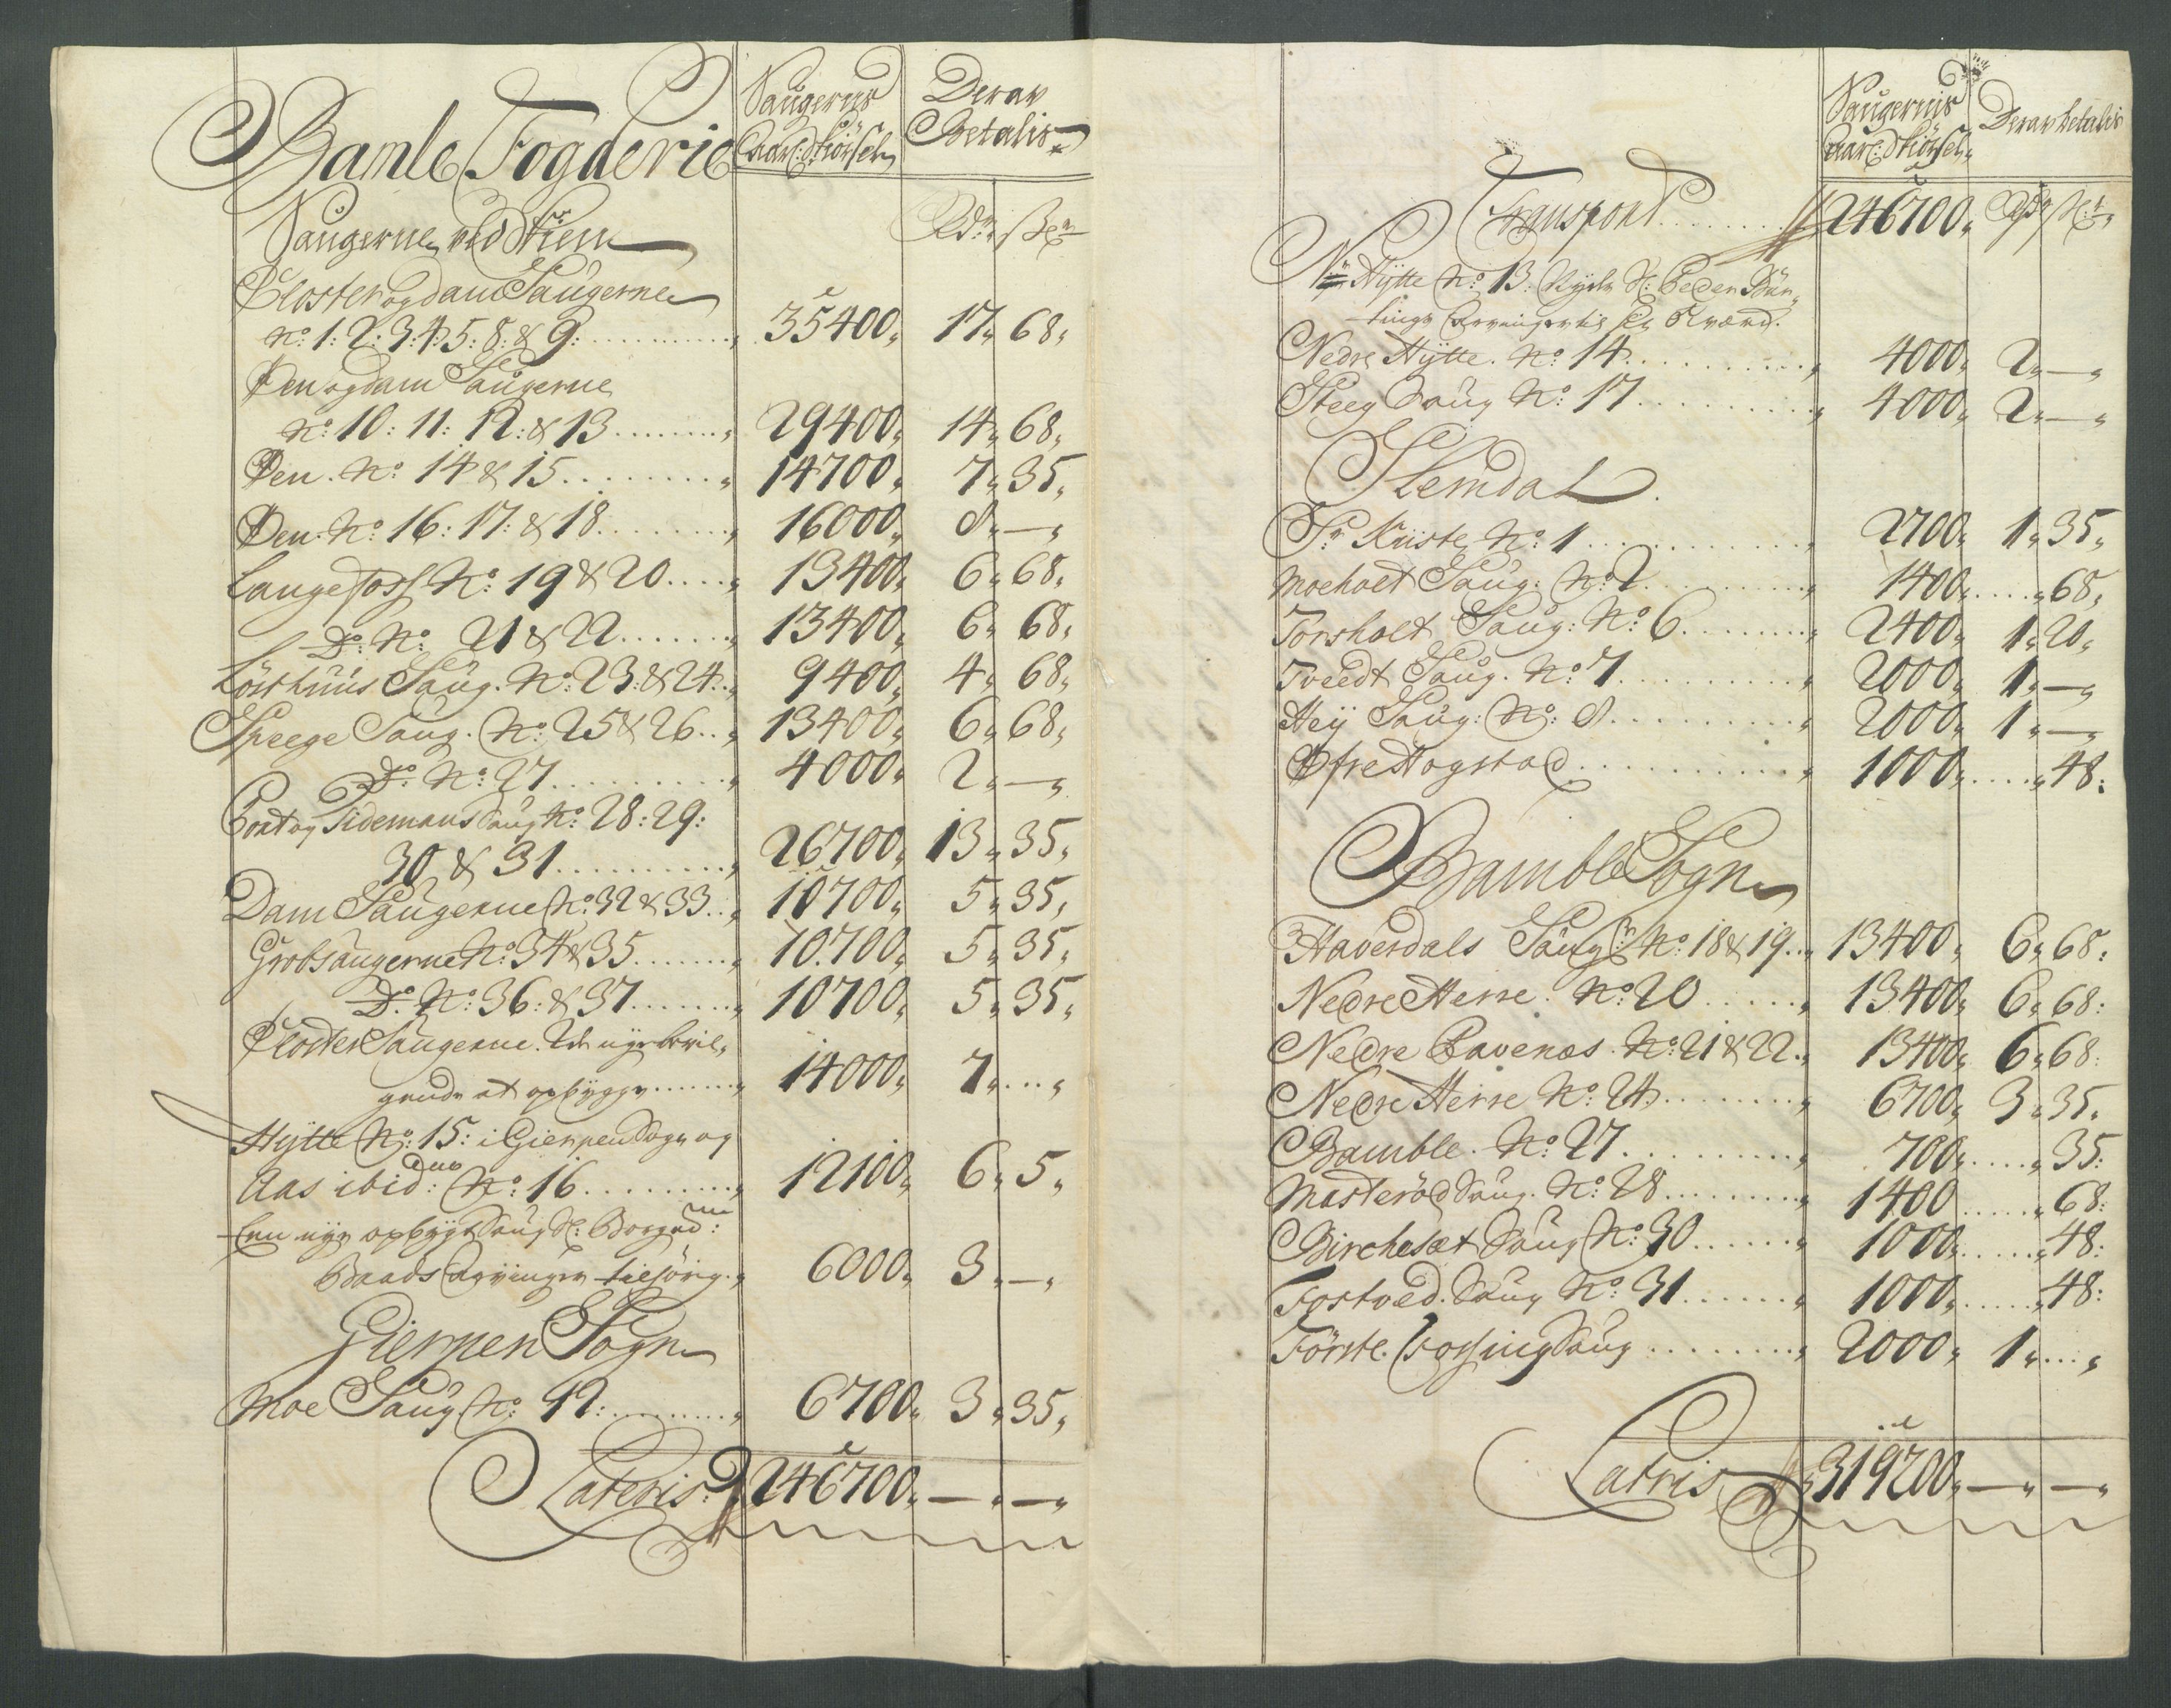 Bamle Fogderie
Saugernis Aarl: Skiörsel
Derav Betalis
Saugerne ved Skien
Rdr
Closter og dam Saugerne
No: 1: 2: 3: 4: 5: 8: & 9: 35400 17 68
Øen og dam Saugerne
No: 10: 11: 12: & 13 29400 14 68
Øen No: 14 & 15 14700 7 35
Øen No: 16: 17: & 18 16000 8 —
Langefoss No: 19 & 20 13400 6 68
Do: No: 21 & 22 13400 6 68
Löshuus Saug. No: 23: & 24 9400 4 68
Skeege Saug. No: 25 & 26 13400 6 68
Do: No: 27 4000 2 —
Bratog Tidemans Saug No: 28: 29:
30 & 31 26700 13 35
Dam Saugerne No: 32 & 33 10700 5 35
Grobsaugerne No: 34 & 35 10700 5 35
Do: No: 36: & 37 10700 5 35
Closter Saugerne. De nye bevil-
gende at opbygge 14000 7
Hytte No: 15: i Gierpen Sogn og
Aas ibid: No: 16 12100 6 5
Een nye opbygt Saug Sl:
Baads Arvinger tilhörig 6000 3 —
Gierpen Sogn
Moe Saug No: 42: 6700 3 35
Lateris 246700 — —
Saugernis Aarl: Skiörsel
Derav betalis
Transport 246700 Rdr
Hytte No: 13. Nyder Sl: Peder
Arvinger
Nedre Hytte. No: 14 4000 2 —
Steeg Saug No: 17 4000 2 —
Slemdal
Kiiste No: 1 2700 1 35
Moeholt Saug: No: 2 1400 68
Torsholt Saug: No: 6 2400 1 20
Tveedt Saug. No: 7 2000 1 —
Heÿ Saug: No: 8 2000 1 —
Øfre Hogstad 1000 48
Bamble Sogn
Haverdals Saug No: 18 & 19 13400 6 68
Nedre Herre. No: 20 13400 6 68
Nedre Ravenæs. No: 21 & 22 13400 6 68
Nedre Herre No: 24 6700 3 35
Bamble. No: 27 700 35
Masteröd Saug. No: 28 1400 68
Birchesæt Saug No: 30 1000 48
Fostved. Saug No: 31 1000 48
Förste Vossing Saug 2000 1
Latris 319200 — —